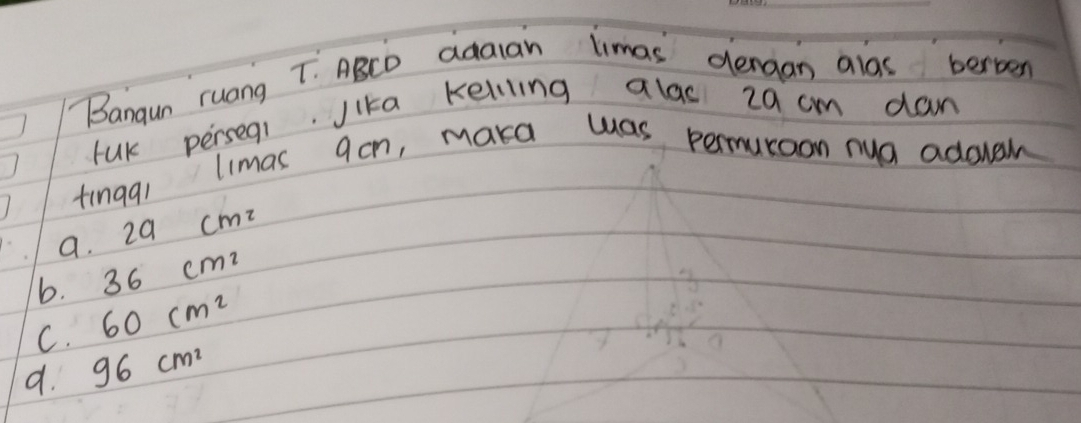 Bangun ruang T. ABCD adalah limas dengan alas berben
tuk persegi. Jika keliling alas 24 cm dan
tinggi limas 4 cm, maka luas permukaan nya adalah
a. 24 cm²
b. 36 cm²
c. 60 cm²
d. 96 cm²